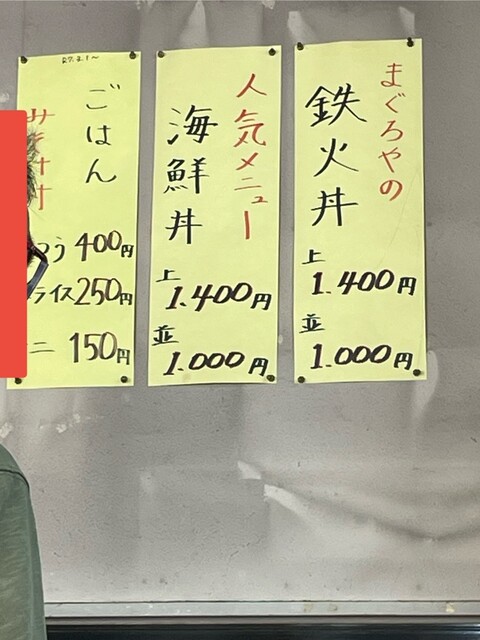 まぐろやの
鉄火丼
上
1.400円
並
1.000円
人気メニュー
海鮮丼
上
1.400円
並
1.000円
ごはん
400円
ライス250円
150円